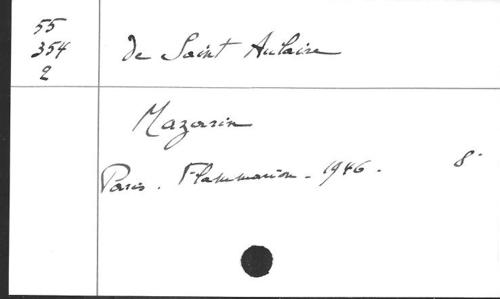 55
354
2
de Saint Aulaire
Mazarin
Paris. Flammarion - 1946 - 8°